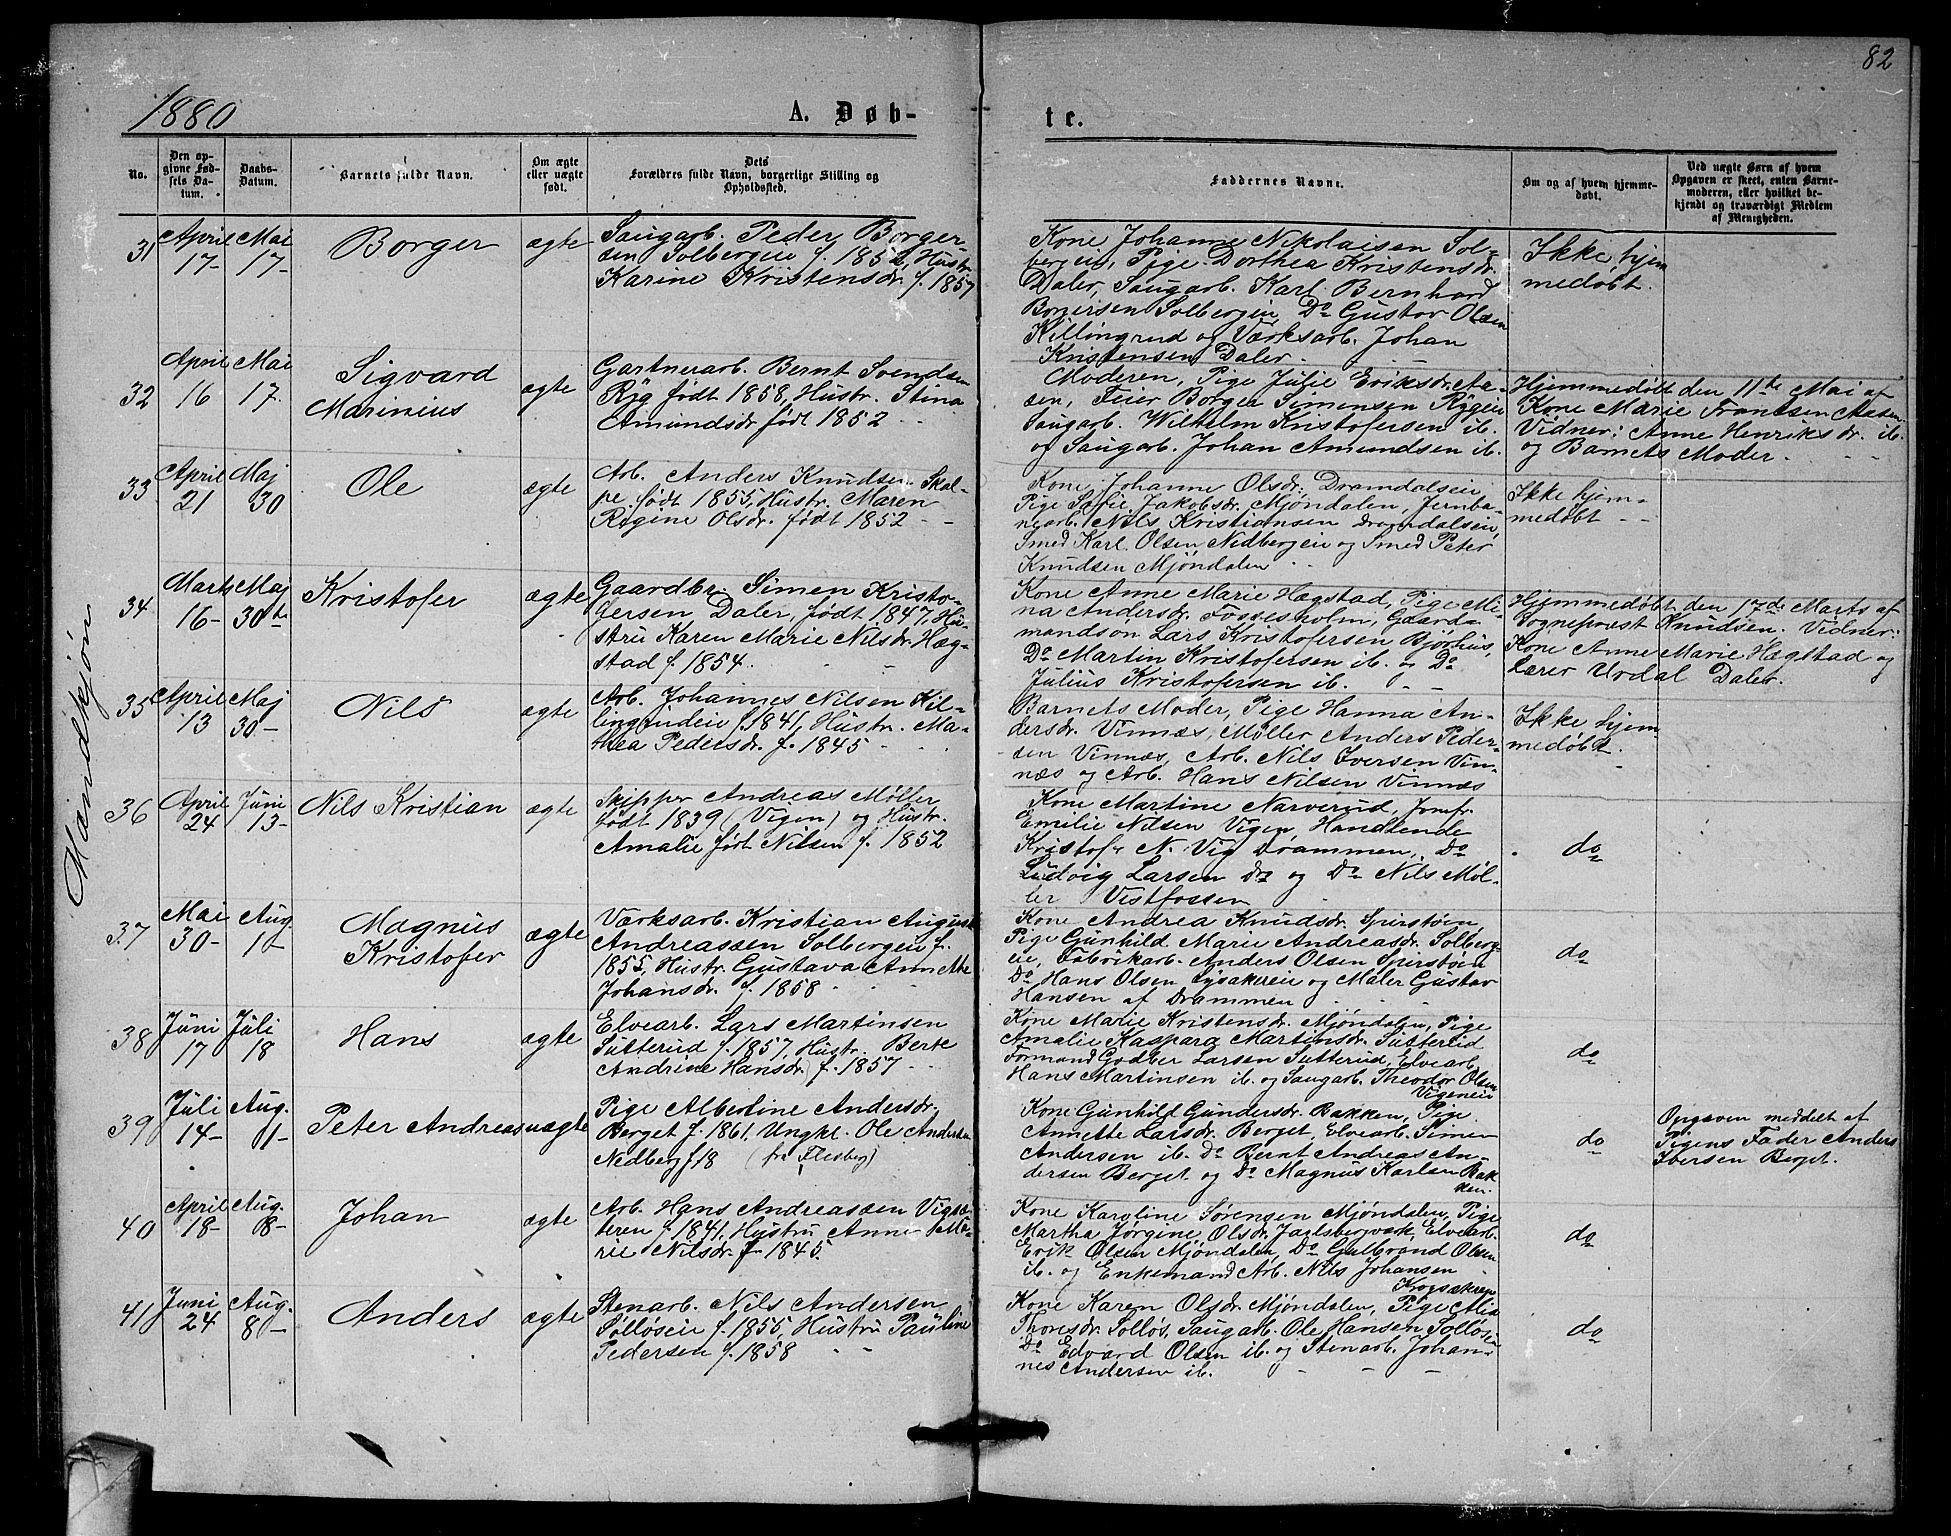 82
1880
A. Døb-
te.
No.
Den op-
givne Fød-
sels Da-
tum.
Daabs-
Datum.
Barnets fulde Navn.
Om ægte
eller uægte
født.
Dets
Forældres fulde Navn, borgerlige Stilling og
Opholdssted.
Faddernes Navne.
Om og af hvem hjemme-
døbt.
Ved uægte Børn af hvem
Opgaven er skeet, enten Barne-
moderen, eller hvilket be-
kjendt og troværdigt Medlem
af Menigheden.
Mandkjøn
31
April
17-
Mai
17-
Borger
ægte
Saugarb. Peder Borger-
sen Solbergeie f. 1852, Hustr.
Karine Kristensdr. f. 1857
Kone Johanne Nikolaisen Sol-
bergeie, Pige Dorthea Kristensdr.
Daler, Saugarb. Karl Bernhard
Borgersen Solbergeie, Do Gustav Olsen
Killingrud og Værksarb. Johan
Kristensen Daler. -
Ikke hjem
medøbt.
32
April
16
Mai
17.
Sigvard
Marinius
ægte
Gartnerarb. Bernt Svendsen
Ryg født 1858, Hustr. Stina
Amundsdr født 1852 - -
Moderen, Pige Julie Eriksdr. Aa-
sen, Feier Borger Simensen Rygeie
Saugarb. Wilhelm Kristofersen ib.
og Saugarb. Johan Amundsen ib.
Hjemmedøbt den 11te Mai af
Kone Marie Frantsen Aasen
Vidner: Anne Henriksdr. ib.
og Barnets Moder. - -
33
April
21
Maj
30
Ole
ægte
Arb. Anders Knudsen Skal-
pe født 1855, Hustr. Maren
Regine Olsdr. født 1852 - -
Kone Johanne Olsdr. Dramdalseie
Pige Sofie Jakobsdr. Mjøndalen, Jernba-
nearb. Nils Kristiansen Dramdalseie,
Smed Karl Olsen Nedbergeie og Smed Peter
Knudsen Mjøndalen - -
Ikke hjem-
medøbt - -
34
Marts
16-
Maj
30te
Kristofer
ægte
Gaardbr. Simen Kristo-
fersen Daler, født 1847, Hu-
stru Karen Marie Nilsdr. Hæg-
stad f. 1854. - -
Kone Anne Marie Hægstad, Pige Mi-
na Andersdr. Fossesholm, Gaard-
mandsøn Lars Kristofersen Bjørhus,
Do Martin Kristofersen ib. og Do
Julius Kristofersen ib. - -
Hjemmedøbt den 17de Marts af
Sogneprest Knudsen. Vidner:
Kone Anne Marie Hægstad og
Lærer Urdal Daler.
35
April
13
Maj
30-
Nils
ægte
Arb. Johannes Nilsen Kil-
lingrudeie f. 1841, Hustr. Ma-
thea Pedersdr. f. 1845 -
Barnets Moder, Pige Hanna An-
dersdr. Vinnæs, Møller Anders Peder-
sen Vinnæs, Arb. Nils Iversen Vin-
næs og Arb. Hans Nilsen Vinnæs
Ikke hjem
medøbt.
36
April
24
Juni
13-
Nils Kristian
ægte
Skipper Andreas Møller
født 1839 (Vigen) og Hustr.
Amalie født Nilsen f. 1852
Kone Martine Narverud, Jomfr.
Emilie Nilsen Vigen, Handlende
Kristofr N. Vig Drammen, Do
Ludvig Larsen Do og Do Nils Møl-
ler Vestfossen
do
37
Mai
30-
Aug.
1-
Magnus
Kristofer
ægte
Værksarb. Kristian August
Andreassen Solbergeie f.
1855, Hustr. Gustava Annette
Johansdr. f. 1858 - -
Kone Andrea Knudsdr. Spirstøen,
Pige Gunhild Marie Andreasdr. Solberg-
eie, Fabrikarb. Anders Olsen Spirstøen
Do Hans Olsen Lysakereie og Maler Gustav
Hansen af Drammen - -
do
38
Juni
17
Juli
18
Hans
ægte
Elvearb. Lars Martinsen
Sutterud f. 1857, Hustr. Berte
Andrine Hansdr. f. 1857 - -
Kone Marie Kristensdr. Mjøndalen, Pige
Amalie Kaspara Martinsdr. Sutterud
Formand Godber Larsen Sutterud, Elvearb.
Hans Martinsen ib. og Saugarb. Theodor Olsen
Vigeneie
do
39
Juli
14-
Aug.
1-
Peter Andreas
uægte
Pige Albertine Andersdr.
Berget f. 1861, Ungkl. Ole Andersen
Nedberg f. 18 (fra Flesberg)
Kone Gunhild Gundersdr. Bakken, Pige
Annette Larsdr. Berget, Elvearb. Simen
Andersen ib. Do Bernt Andreas An-
dersen Berget og Do Magnus Karlsen Bak
ken.
do
Opgaven meddelt af
Pigens Fader Anders
Iversen Berget.
40
April
18-
Aug.
8-
Johan
ægte
Arb. Hans Andreassen Vigsæ-
teren f. 1841, Hustru Anne Ma-
rie Nilsdr f. 1845.
Kone Karoline Sørensen Mjøndalen, Pige
Martha Jørgine Olsdr. Jarlsbergværk, Elvearb.
Erik Olsen Mjøndalen, Do Gulbrand Olsen
ib. og Enkemand Arb. Nils Johansen
do
41
Juni
24
Aug.
8-
Anders
ægte
Stenarb. Nils Andersen
Solløseie f. 1855, Hustru Pauline
Pedersen f. 1858 - -
Kone Karen Olsdr. Mjøndalen, Pige Mia
Thoresdr. Solløs, Saugarb. Ole Hansen Solløs,
Do Edvard Olsen ib. og Stenarb. Johan-
nes Andersen ib. - - -
do